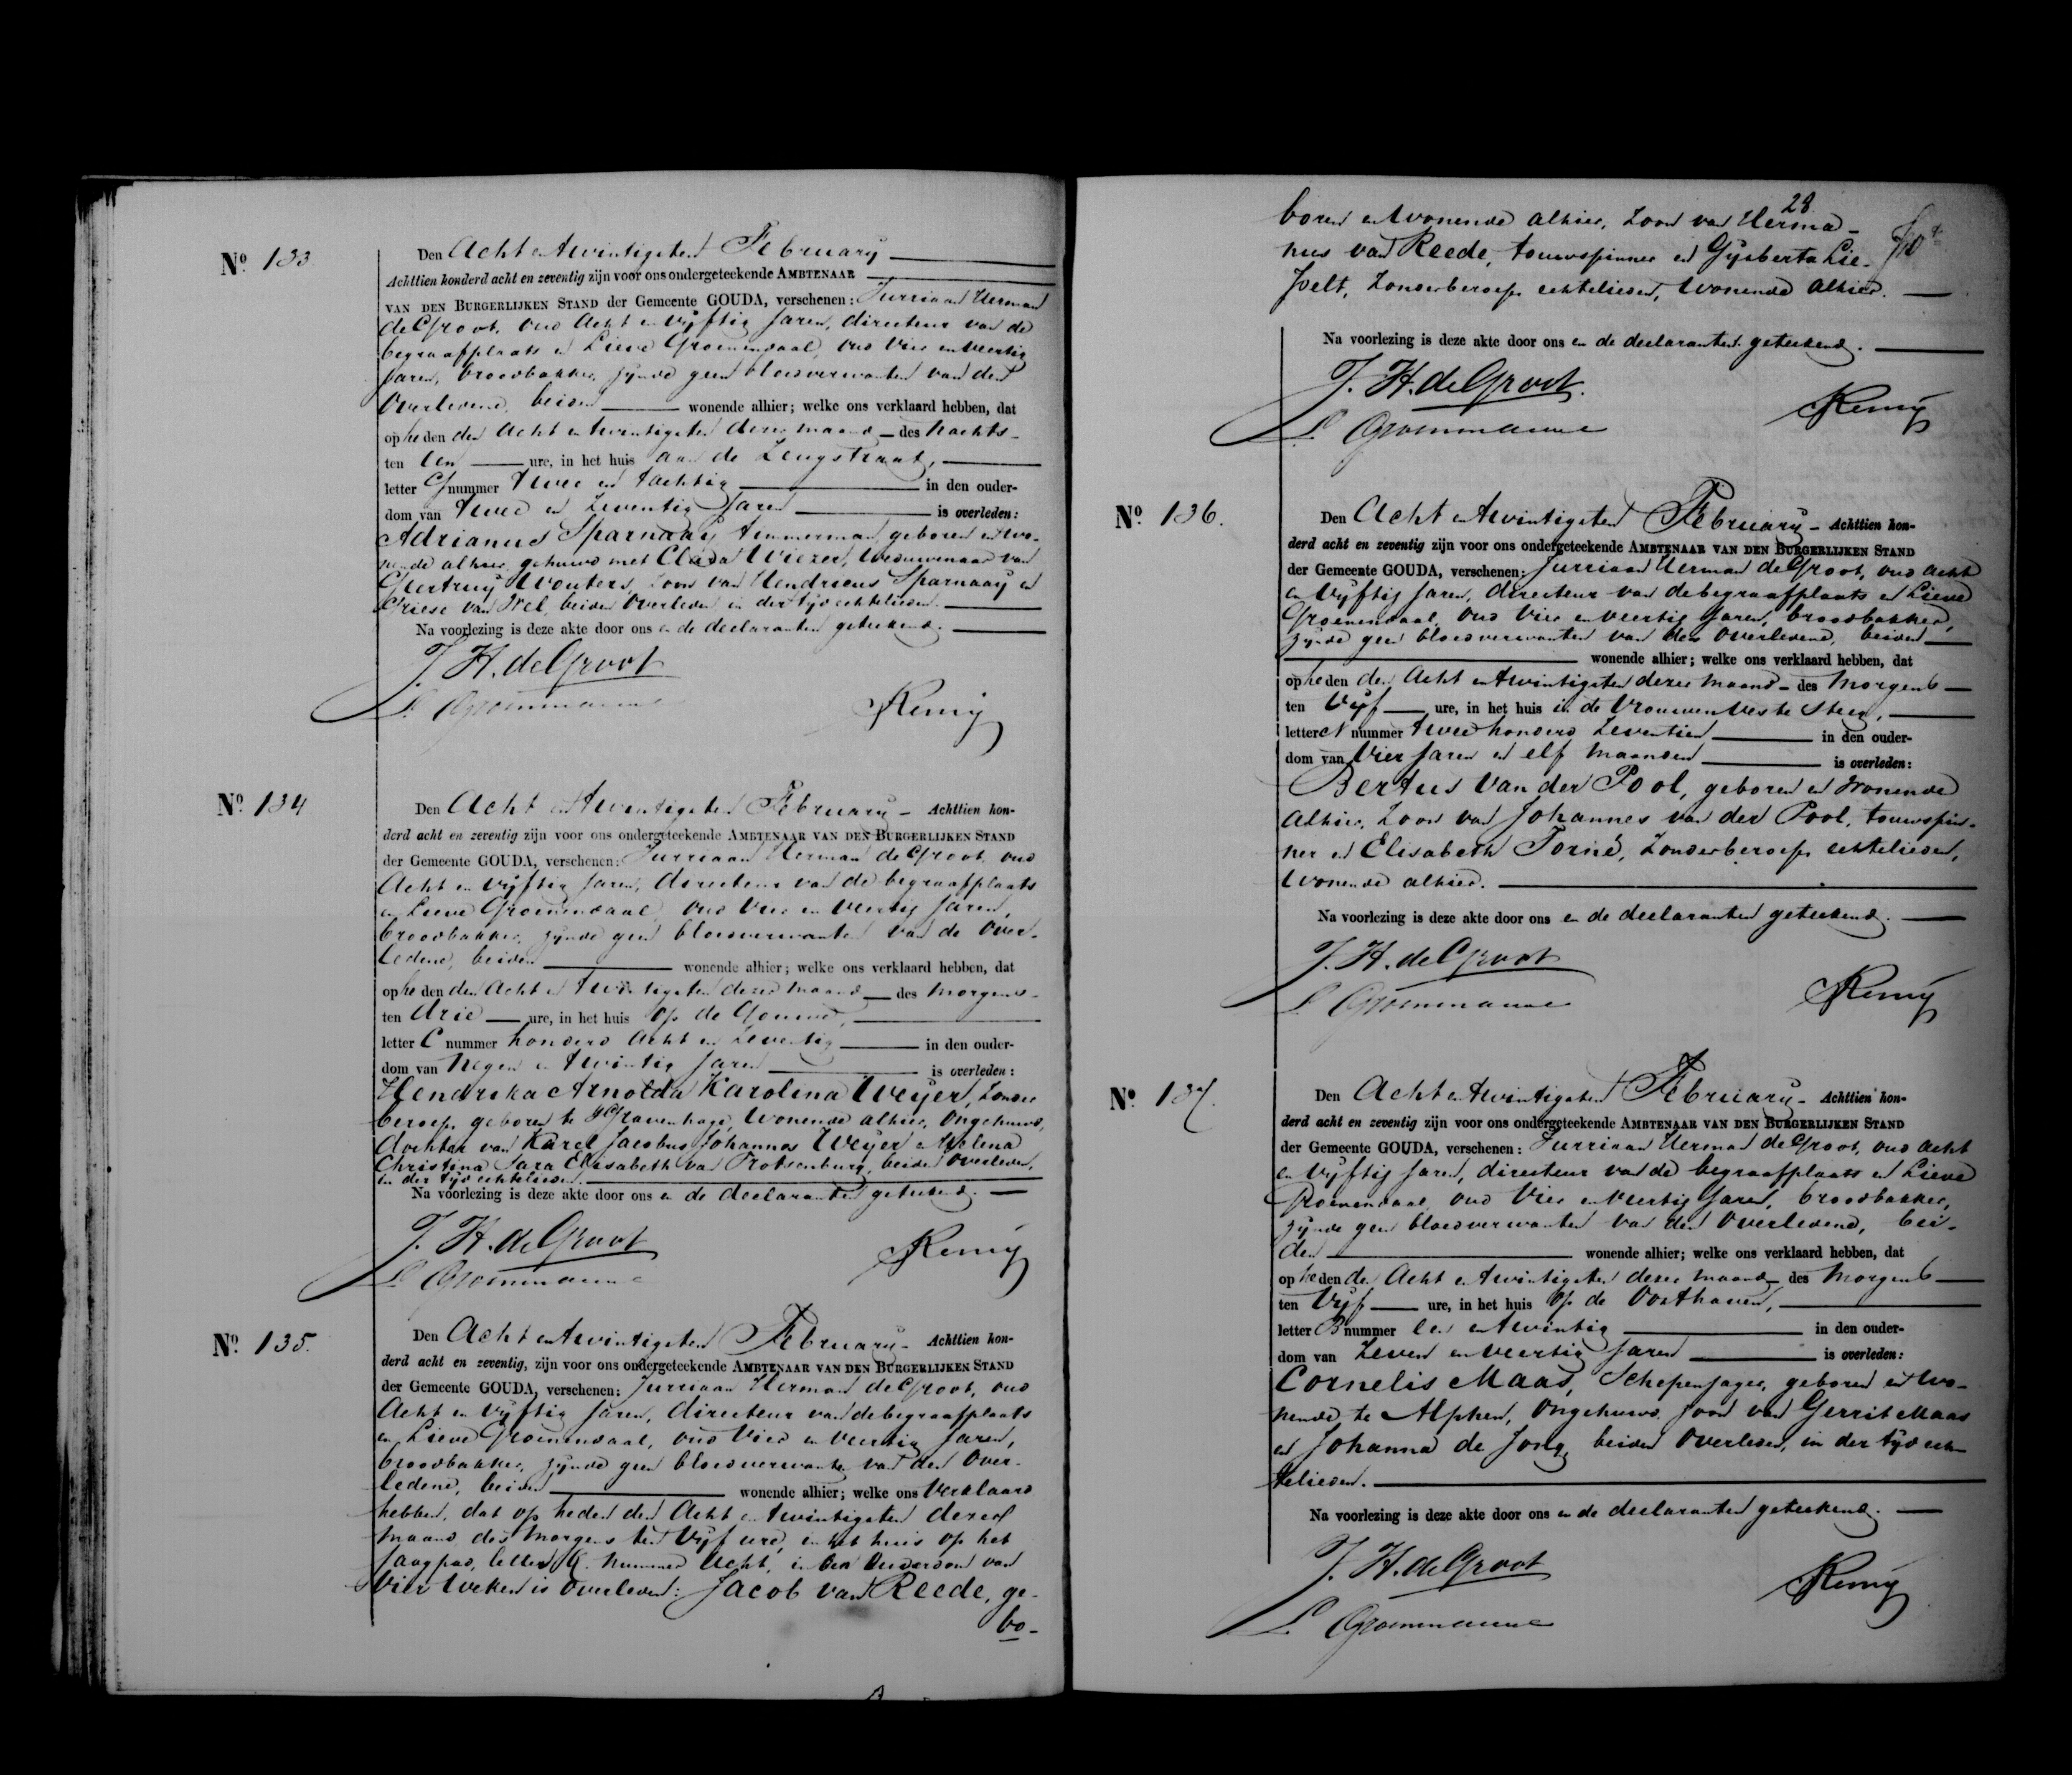 Nº 133.
Den Acht en twintigsten February
Achttien honderd acht en zeventig zijn voor ons ondergeteekende AMBTENAAR
VAN DEN BURGERLIJKEN STAND der Gemeente GOUDA, verschenen: Jurriaan Herman
de Groot, oud Acht en vyftig Jaren, directeur van de
begraafplaats en Lieve Groenendaal, oud Vier en Veertig
Jaren, broodbakker, zynde geen bloedverwanten van den
Overledene, beiden wonende alhier; welke ons verklaard hebben, dat
op heden den Acht en twintigsten dezer maand des Nachts
ten Een ure, in het huis aan de Zeugstraat,
letter G nummer Twee en tachtig in den ouder-
dom van Twee en Zeventig Jaren is overleden:
Adrianus Sparnaay, timmerman, geboren en wo-
nende alhier, gehuwd met Wiezer, Weduwnaar van
Geertruy Wouters, Zoon van Hendricus Sparnaay en
van Wel, beiden Overleden, in der tyd echtelieden.
Na voorlezing is deze akte door ons en de declaranten geteekend.
J. H. de Groot
L Groenendaal
Remy
Nº 134
Den Acht en twintigsten February - Achttien hon-
derd acht en zeventig zijn voor ons ondergeteekende AMBTENAAR VAN DEN BURGERLIJKEN STAND
der Gemeente GOUDA, verschenen: Jurriaan Herman de Groot, oud
Acht en vyftig Jaren, directeur van de begraafplaats
en Lieve Groenendaal, oud Vier en Veertig Jaren,
broodbakker, zynde geen bloedverwanten van de Over-
ledene, beiden wonende alhier; welke ons verklaard hebben, dat
op heden den Acht en twintigsten dezer maand des Morgens
ten drie ure, in het huis op de Gouwe,
letter C nummer honderd acht en Zeventig in den ouder-
dom van Negen en twintig Jaren is overleden:
Hendrika Arnolda Karolina Weyer, Zonder
beroep, geboren te 's Gravenhage, Wonende alhier, Ongehuwd,
dochter van Karel Jacobus Johannes Weyer en Helena
Christina Sara Elisabeth van Trotsenburg, beiden Overleden,
in der tyd echtelieden.
Na voorlezing is deze akte door ons en de declaranten geteekend.
J. H. de Groot
L Groenendaal
Remy
Nº 135.
Den Acht en twintigsten February - Achttien hon-
derd acht en zeventig, zijn voor ons ondergeteekende AMBTENAAR VAN DEN BURGERLIJKEN STAND
der Gemeente GOUDA, verschenen: Jurriaan Herman de Groot, oud
Acht en vyftig Jaren, directeur van de begraafplaats
en Lieve Groenendaal, oud Vier en Veertig Jaren,
broodbakker, zynde geen bloedverwanten van den Over-
ledene, beiden wonende alhier; welke ons Verklaard
hebben, dat op heden den Acht en twintigsten dezer
maand des Morgens ten Vyf ure, in het huis op het
Jaagpad, letter nummer Acht, in den Ouderdom van
Vier Weken is Overleden: Jacob van Reede, ge-
bo-
28
boren en Wonende alhier, Zoon van Herma-
nus van Reede, touwspinner en Gysberta Lie-
felt, Zonder beroep, echtelieden, Wonende alhier.
Na voorlezing is deze akte door ons en de declaranten geteekend.
J. H. de Groot
L Groenendaal
Remy
Nº 136.
Den Acht en twintigsten February - Achttien hon-
derd acht en zeventig zijn voor ons ondergeteekende AMBTENAAR VAN DEN BURGERLIJKEN STAND
der Gemeente GOUDA, verschenen: Jurriaan Herman de Groot, oud Acht
en Vyftig Jaren, directeur van de begraafplaats en Lieve
Groenendaal, oud Vier en Veertig Jaren, broodbakker,
zynde geen bloedverwanten van den Overledene, beiden
wonende alhier; welke ons verklaard hebben, dat
op heden den Acht en twintigsten dezer maand - des Morgens
ten Vyf ure, in het huis in de Vrouwen Veste Steeg,
letter N nummer Twee honderd Zeventien in den ouder-
dom van Vier Jaren en elf Maanden is overleden:
Bertus van der Pool, geboren en Wonende
alhier, Zoon van Johannes van der Pool, touwspin-
ner en Elisabeth Torné, Zonder beroep, echtelieden,
Wonende alhier.
Na voorlezing is deze akte door ons en de declaranten geteekend.
J. H. de Groot
L Groenendaal
Remy
Nº 137.
Den Acht en twintigsten February - Achttien hon-
derd acht en zeventig zijn voor ons ondergeteekende AMBTENAAR VAN DEN BURGERLIJKEN STAND
der Gemeente GOUDA, verschenen: Jurriaan Herman de Groot, oud Acht
en Vyftig Jaren, directeur van de begraafplaats en Lieve
Groenendaal, oud Vier en Veertig Jaren, broodbakker,
zynde geen bloedverwanten van den Overledene, bei-
den wonende alhier; welke ons verklaard hebben, dat
op heden den Acht en twintigsten dezer maand des Morgens
ten Vyf ure, in het huis op de Oosthaven,
letter B nummer een en twintig in den ouder-
dom van Zeven en Veertig Jaren is overleden:
Cornelis Maas, Schepenjager, geboren en Wo-
nende te Alphen, Ongehuwd, Zoon van Gerrit Maas
en Johanna de Jong, beiden Overleden, in der tyd ech-
telieden.
Na voorlezing is deze akte door ons en de declaranten geteekend.
J. H. de Groot
L. Groenendaal
Remy